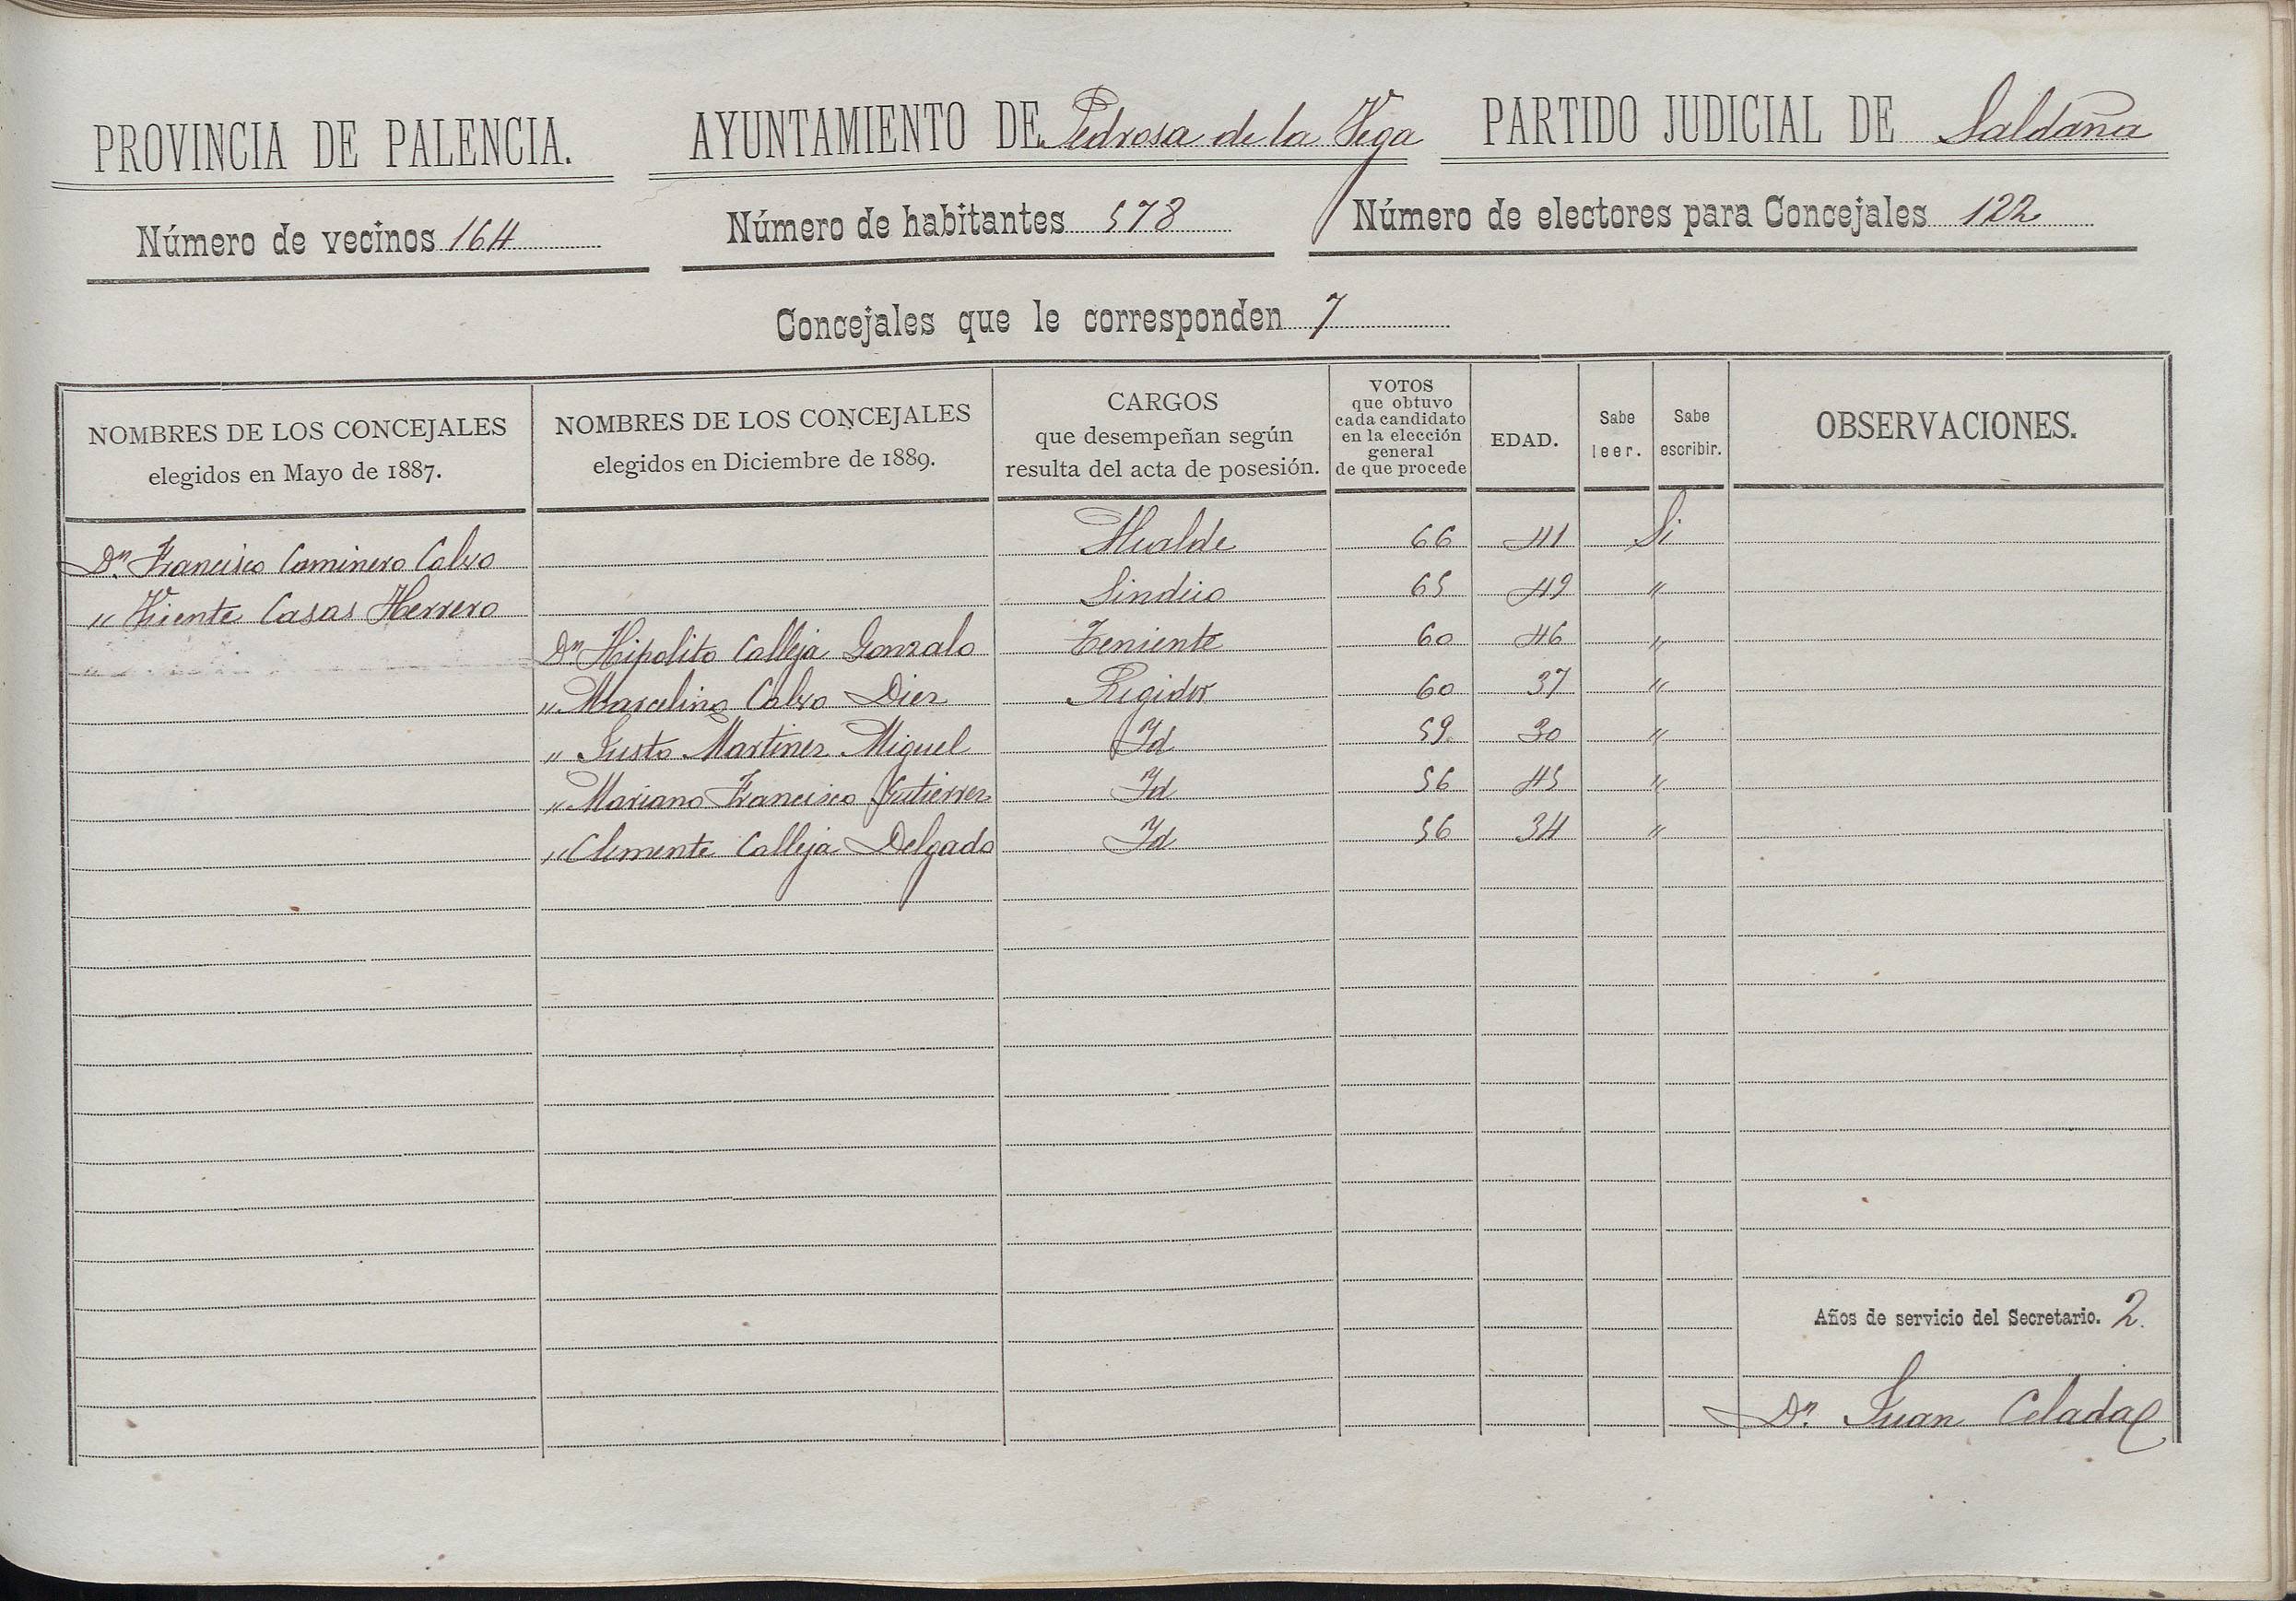 PROVINCIA DE PALENCIA. AYUNTAMIENTO DE Pedrosa de la Vega PARTIDO JUDICIAL DE Saldaña
Número de vecinos 164 Número de habitantes 578 Número de electores para Concejales 122
Concejales que le corresponden 7
NOMBRES DE LOS CONCEJALES elegidos en Mayo de 1887. NOMBRES DE LOS CONCEJALES elegidos en Diciembre de 1889. CARGOS que desempeñan según resulta del acta de posesión. VOTOS que obtuvo cada candidato en la elección general de que procede EDAD. Sabe leer. Sabe escribir. OBSERVACIONES.
Dn. Francisco Caminero Calvo Alcalde 66 41 Si
" Vicente Casas Herrero Sindico 65 49 "
" Dn Hipolito Calleja Gonzalo Teniente 60 46 "
" Marcelino Calvo Diez Regidor 60 37 "
" Justo Martinez Miguel Id 59 30 "
" Mariano Francisco Gutierrez Id 56 45 "
" Clemente Calleja Delgado Id 56 34 "
Años de servicio del Secretario. 2.
Dn. Juan Celada